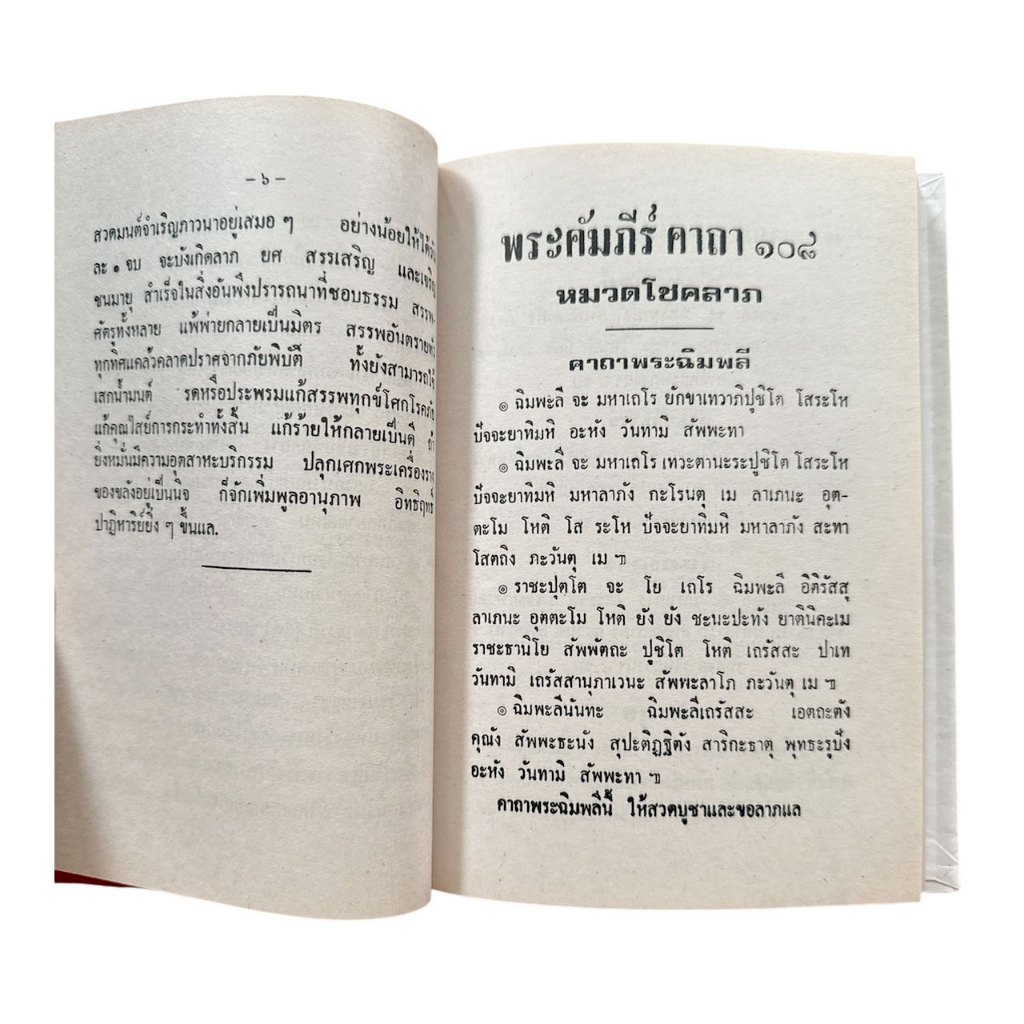 – ๖ –
สวดมนต์จำเริญภาวนาอยู่เสมอ ๆ อย่างน้อยให้ได้วัน
ละ ๑ จบ จะบังเกิดลาภ ยศ สรรเสริญ และเจริญ
ชนมายุ สำเร็จในสิ่งอันพึงปรารถนาที่ชอบธรรม สรรพ-
ศัตรูทั้งหลาย แพ้พ่ายกลายเป็นมิตร สรรพอันตรายทั่ว
ทุกทิศแคล้วคลาดปราศจากภัยพิบัติ ทั้งยังสามารถใช้
เสกน้ำมนต์ รดหรือประพรมแก้สรรพทุกข์โศกโรคภัย
แก้คุณไสย์การกระทำทั้งสิ้น แก้ร้ายให้กลายเป็นดี ถ้า
ยิ่งหมั่นมีความอุตสาหะบริกรรม ปลุกเศกพระเครื่องราง
ของขลังอยู่เป็นนิจ ก็จักเพิ่มพูลอานุภาพ อิทธิฤทธิ์
ปาฏิหาริย์ยิ่ง ๆ ขึ้นแล.
พระคัมภีร์ คาถา ๑๐๘
หมวดโชคลาภ
คาถาพระฉิมพลี
๏ ฉิมพะลี จะ มหาเถโร ยักขาเทวาภิปูชิโต โสระโห
ปัจจะยาทิมหิ อะหัง วันทามิ สัพพะทา
๏ ฉิมพะลี จะ มหาเถโร เทวะตานะระปูชิโต โสระโห
ปัจจะยาทิมหิ มหาลาภัง กะโรนตุ เม ลาเภนะ อุต-
ตะโม โหติ โส ระโห ปัจจะยาทิมหิ มหาลาภัง สะทา
โสตถิง ภะวันตุ เม ฯ
๏ ราชะปุตโต จะ โย เถโร ฉิมพะลี อิติรัสสุ
ลาเภนะ อุตตะโม โหติ ยัง ยัง ชะนะปะทัง ยาตินิคะเม
ราชะธานิโย สัพพัตถะ ปูชิโต โหติ เถรัสสะ ปาเท
วันทามิ เถรัสสานุภาเวนะ สัพพะลาโภ ภะวันตุ เม ฯ
๏ ฉิมพะลีนันทะ ฉิมพะลีเถรัสสะ เอตถะตัง
คุณัง สัพพะธะนัง สุปะติฏฐิตัง สาริกะธาตุ พุทธะรูปัง
อะหัง วันทามิ สัพพะทา ฯ
คาถาพระฉิมพลีนี้ ให้สวดบูชาและขอลาภแล